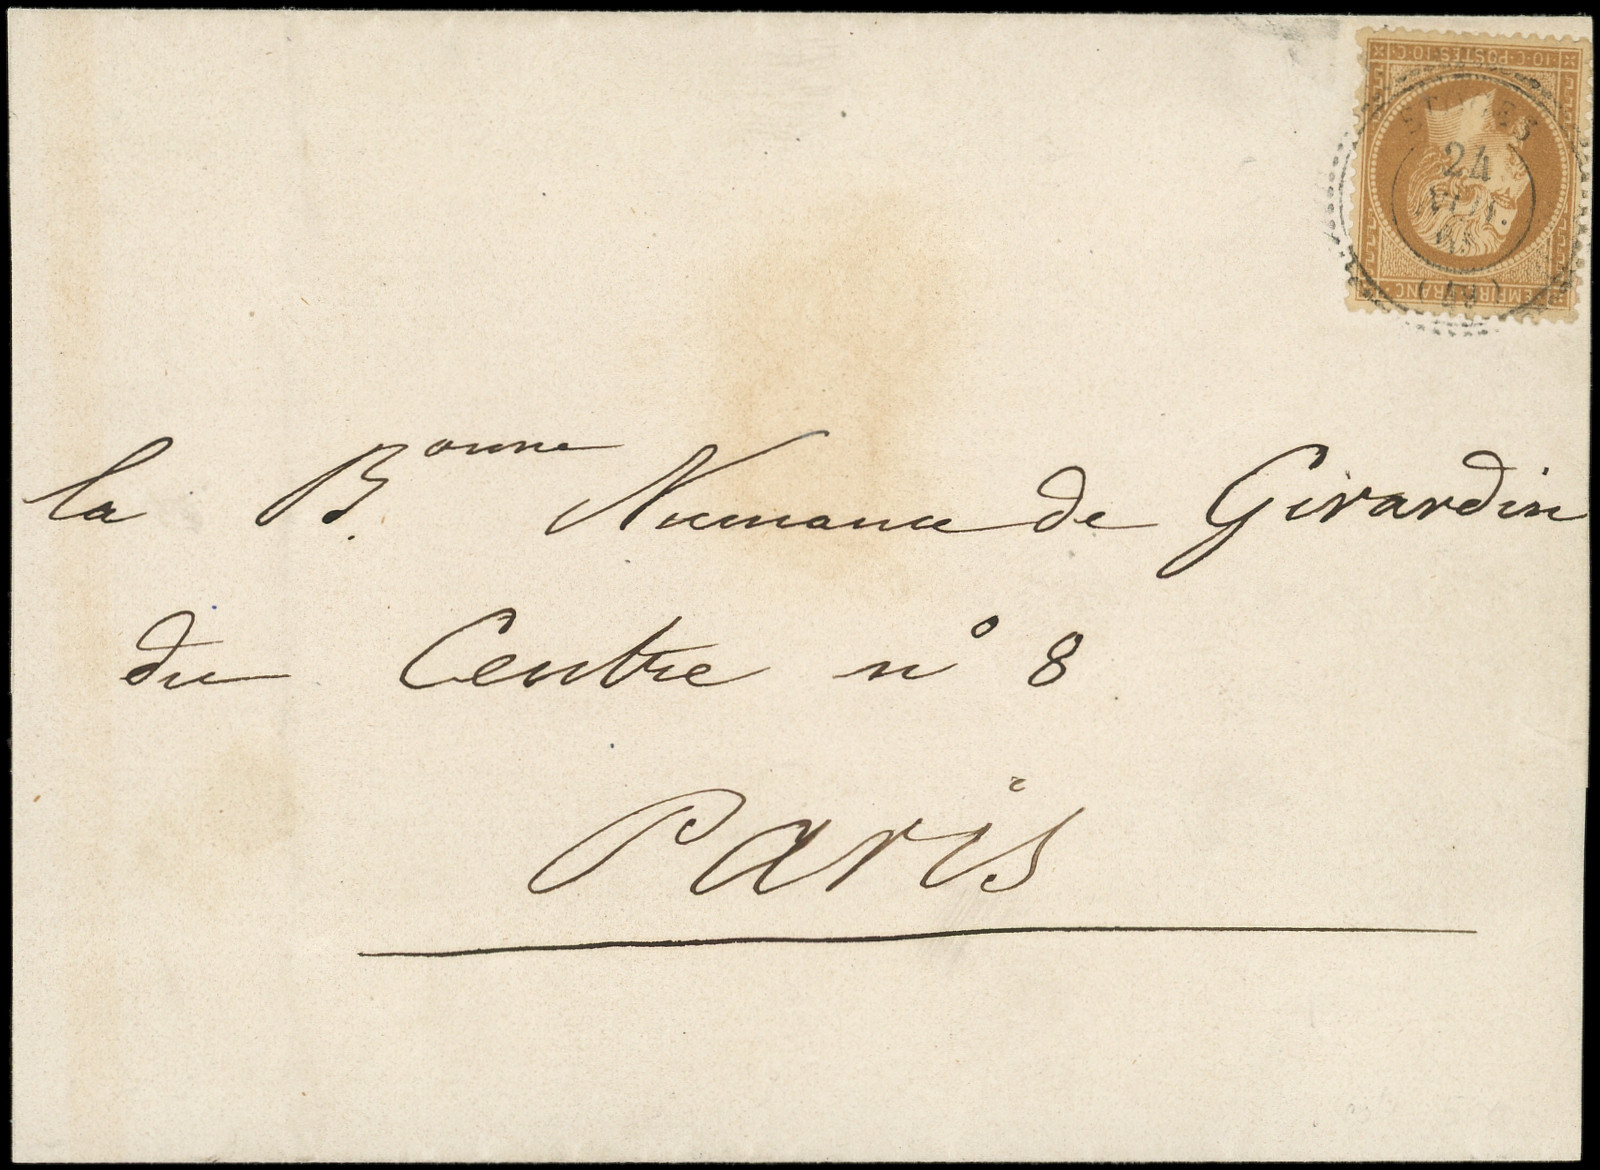 10·C·POSTES·10·C
24
EMPIRE FRANC
la B.onne Numance de Girardin
du Centre n° 8
Paris